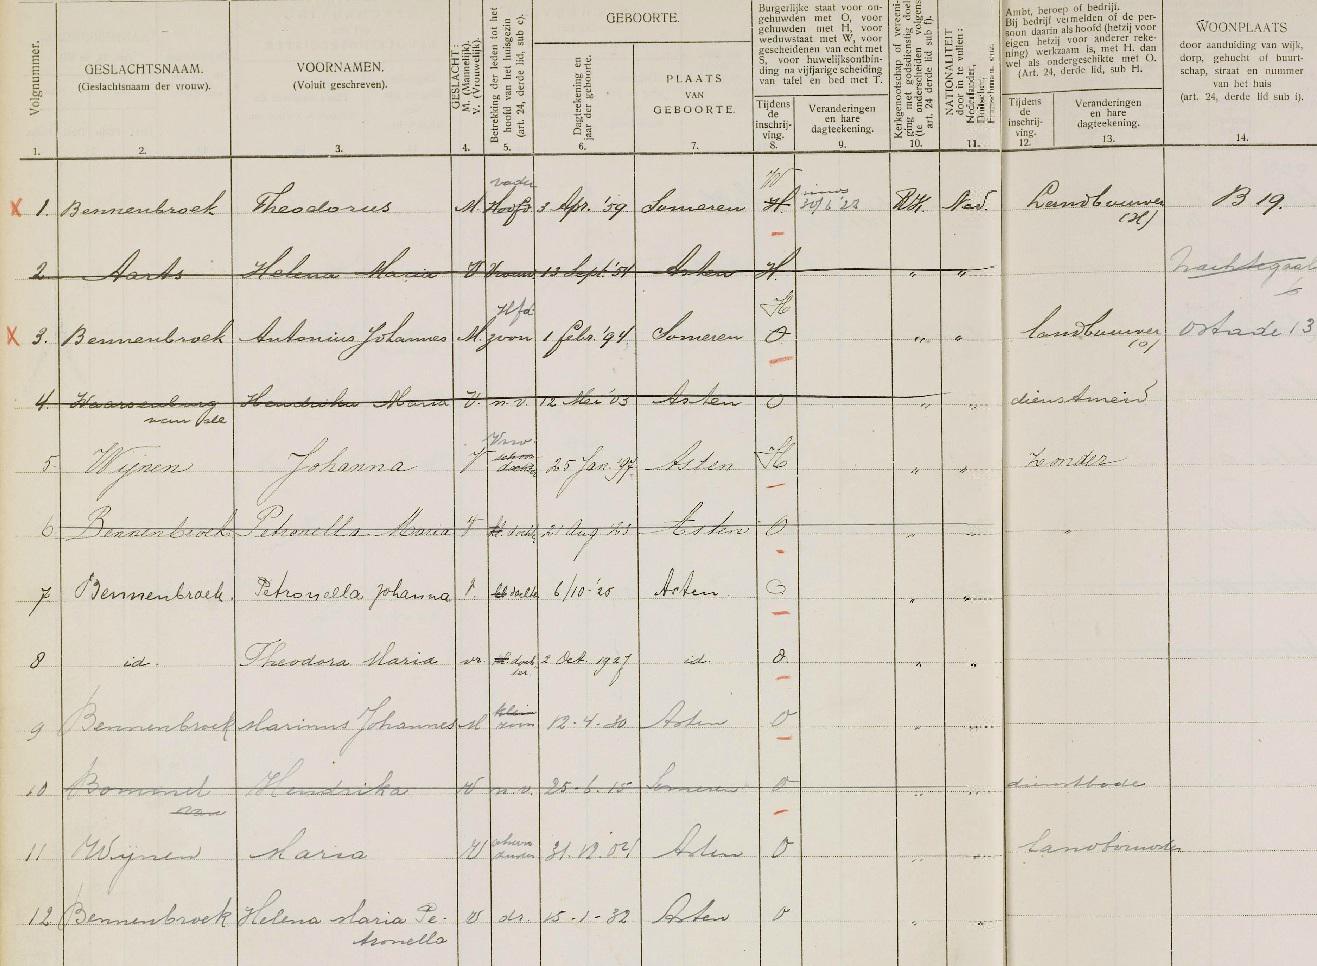 Volgnummer.
GESLACHTSNAAM.
(Geslachtsnaam der vrouw).
VOORNAMEN.
(Voluit geschreven).
GESLACHT:
M. (Mannelijk).
V. (Vrouwelijk).
Betrekking der leden tot het
hoofd van het huisgezin
(art. 24, derde lid, sub c).
GEBOORTE.
Dagteekening en
jaar der geboorte.
PLAATS
VAN
GEBOORTE.
Burgerlijke staat voor on-
gehuwden met O, voor
gehuwden met H, voor
weduwstaat met W, voor
gescheidenen van echt met
S, voor huwelijksontbin-
ding na vijfjarige scheiding
van tafel en bed met T.
Tijdens
de
inschrij-
ving.
Veranderingen
en hare
dagteekening.
Kerkgenootschap of vereeni-
ging met godsdienstig doel
(te onderscheiden volgens
art. 24 derde lid sub f).
NATIONALITEIT
door in te vullen:
Nederlander,
Duitscher,
Ambt, beroep of bedrijf.
Bij bedrijf vermelden of de per-
soon daarin als hoofd (hetzij voor
eigen hetzij voor anderer reke-
ning) werkzaam is, met H. dan
wel als ondergeschikte met O.
(Art. 24, derde lid, sub H.
Tijdens
de
inschrij-
ving.
Veranderingen
en hare
dagteekening.
WOONPLAATS
door aanduiding van wijk,
dorp, gehucht of buurt-
schap, straat en nummer
van het huis
(art. 24, derde lid sub i).
1. 2. 3. 4. 5. 6. 7. 8. 9. 10. 11. 12. 13. 14.
vader W
X 1. Bennenbroek Theodorus M. Hoofd 3 Apr. '59 Someren H R.K. Ned. Landbouwer B 19.
(H)
2 Aarts Helena Maria V Vrouw 13 Sept. '51 Asten H. " "
Hfd. H
X 3. Bennenbroek Antonius Johannes M. zoon 1 Febr. '94 Someren O " " landbouwer Ostade 13
(O)
4. Hendrika Maria V. n.v. 12 Mei '03 Asten O " " dienstmeid
Vrw.
5 Wijnen Johanna V schoon 25 Jan. '97 Asten H " " zonder
6 Bennenbroek Petronella Maria V kl. docht. 21 Aug '23 Asten O " " "
7 Bennenbroek. Petronella Johanna V. kl dochter 6/10-'25 Asten O " "
8 id. Theodora Maria vr kl doch 2 Oct. 1927 id. O. " "
ter
9 Bennenbroek Marinus Johannes M klein 12-4-30 Asten O " "
zoon
10 Bommel Hendrika V n.v. 25-6-15 Someren O " " dienstbode
van
11 Wijnen Maria V schoon 31.12.04 Asten O " " landbouwster
12 Bennenbroek Helena Maria Pe- v dr. 15-1-32 Asten O " "
tronella